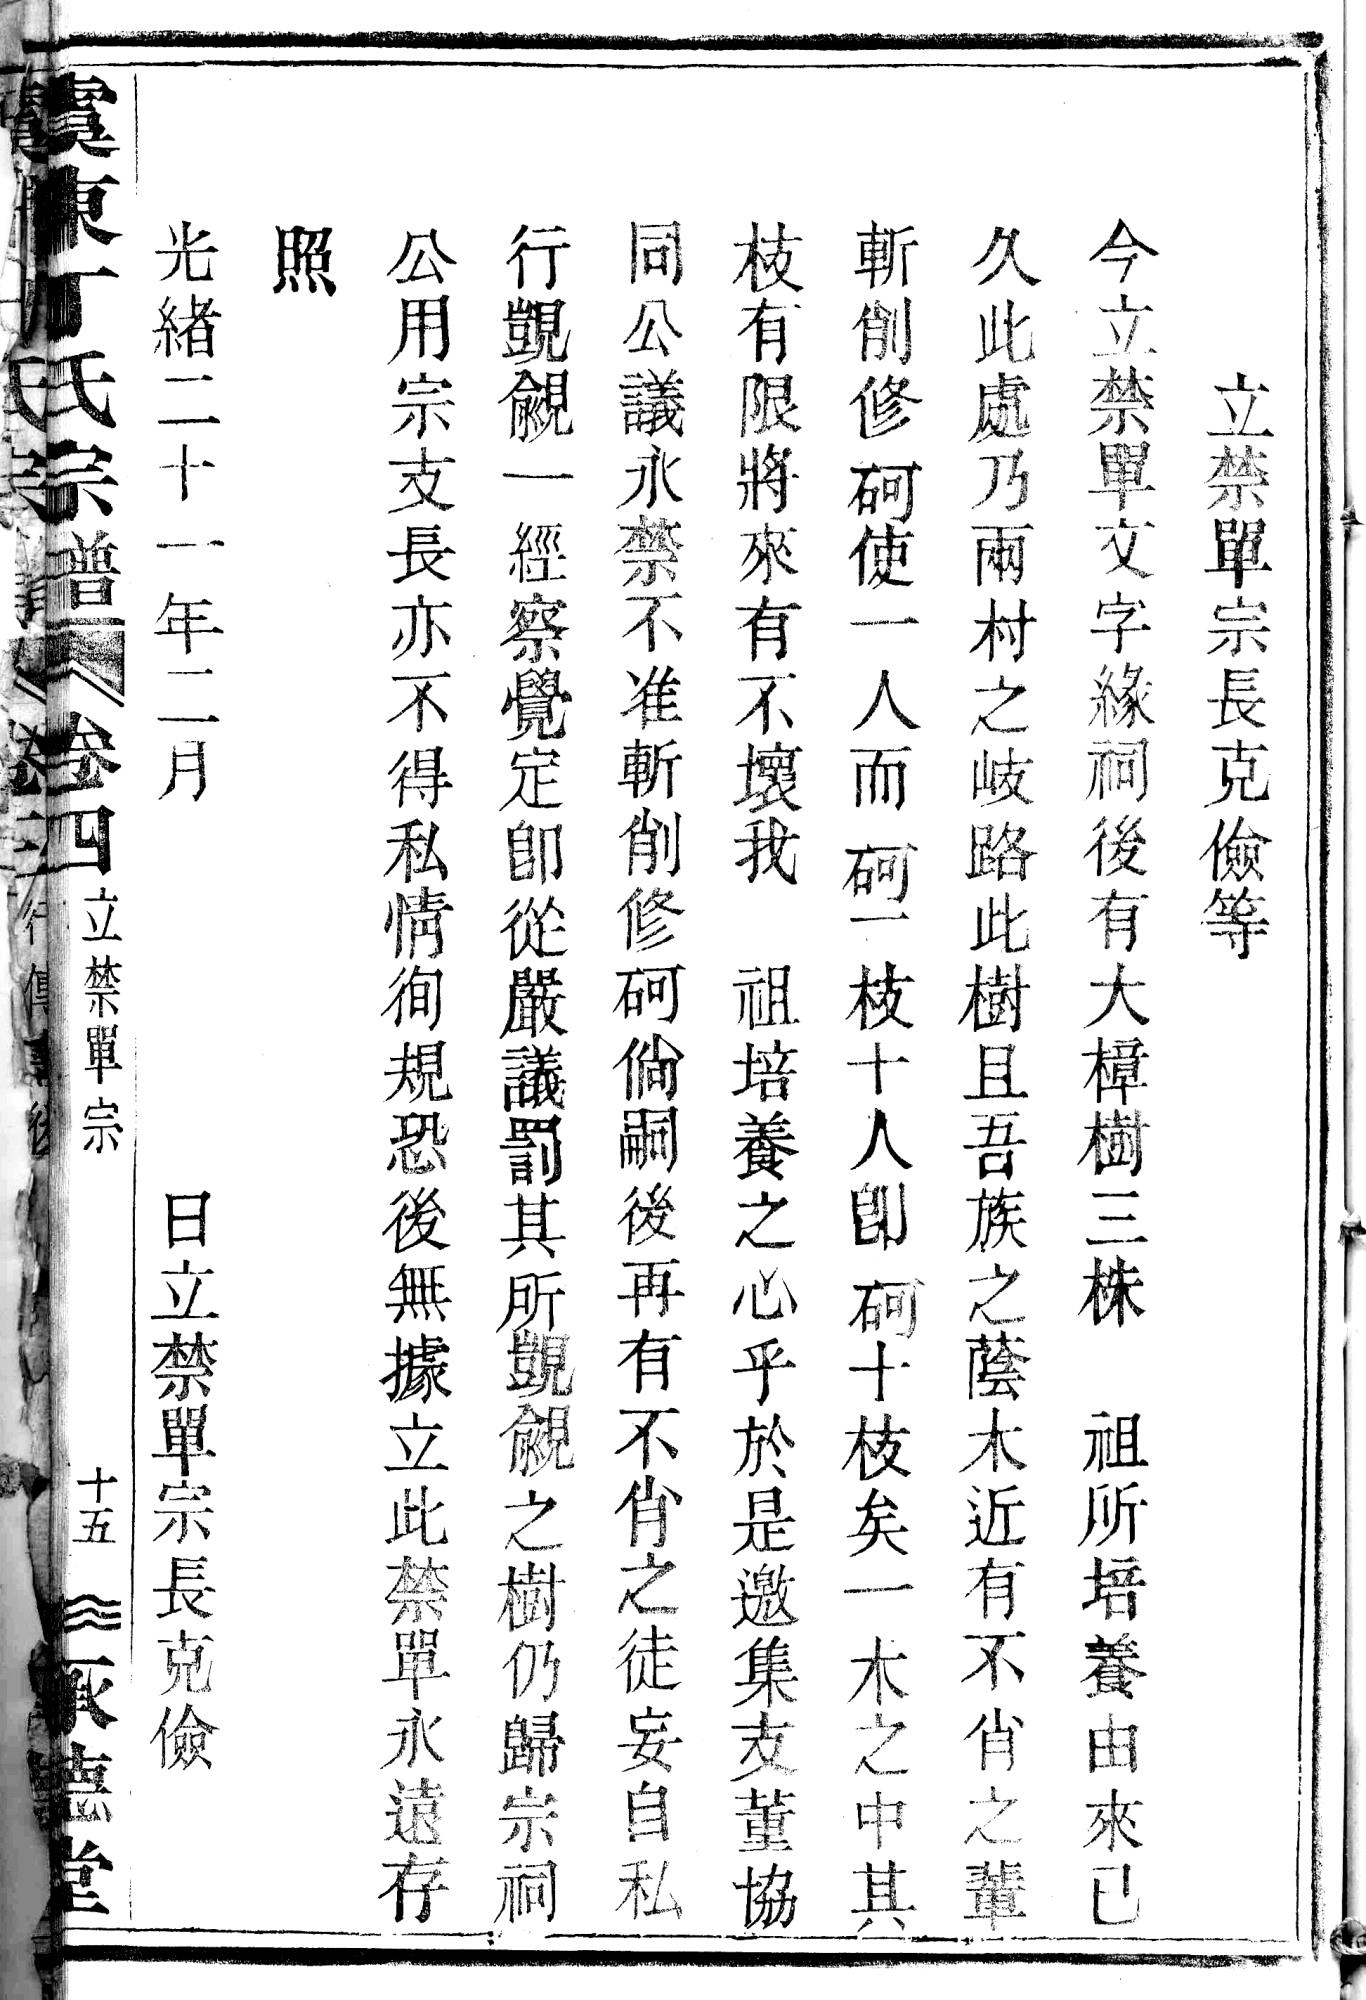 立禁單宗長克儉等
今立禁單文字緣祠後有大樟樹三株　祖所培養由來已
久此處乃兩村之岐路此樹且吾族之蔭木近有不肖之輩
斬削修砢使一人而砢一枝十人卽砢十枝矣一木之中其
枝有限將來有不壞我　祖培養之心乎於是邀集支董協
同公議永禁不准斬削修砢倘嗣後再有不肖之徒妄自私
行覬覦一經察覺定卽從嚴議罰其所覬覦之樹仍歸宗祠
公用宗支長亦不得私情徇規恐後無據立此禁單永遠存
照
光緒二十一年二月　日立禁單宗長克儉
虞東丁氏宗譜　卷四　立禁單宗　十五　承德堂